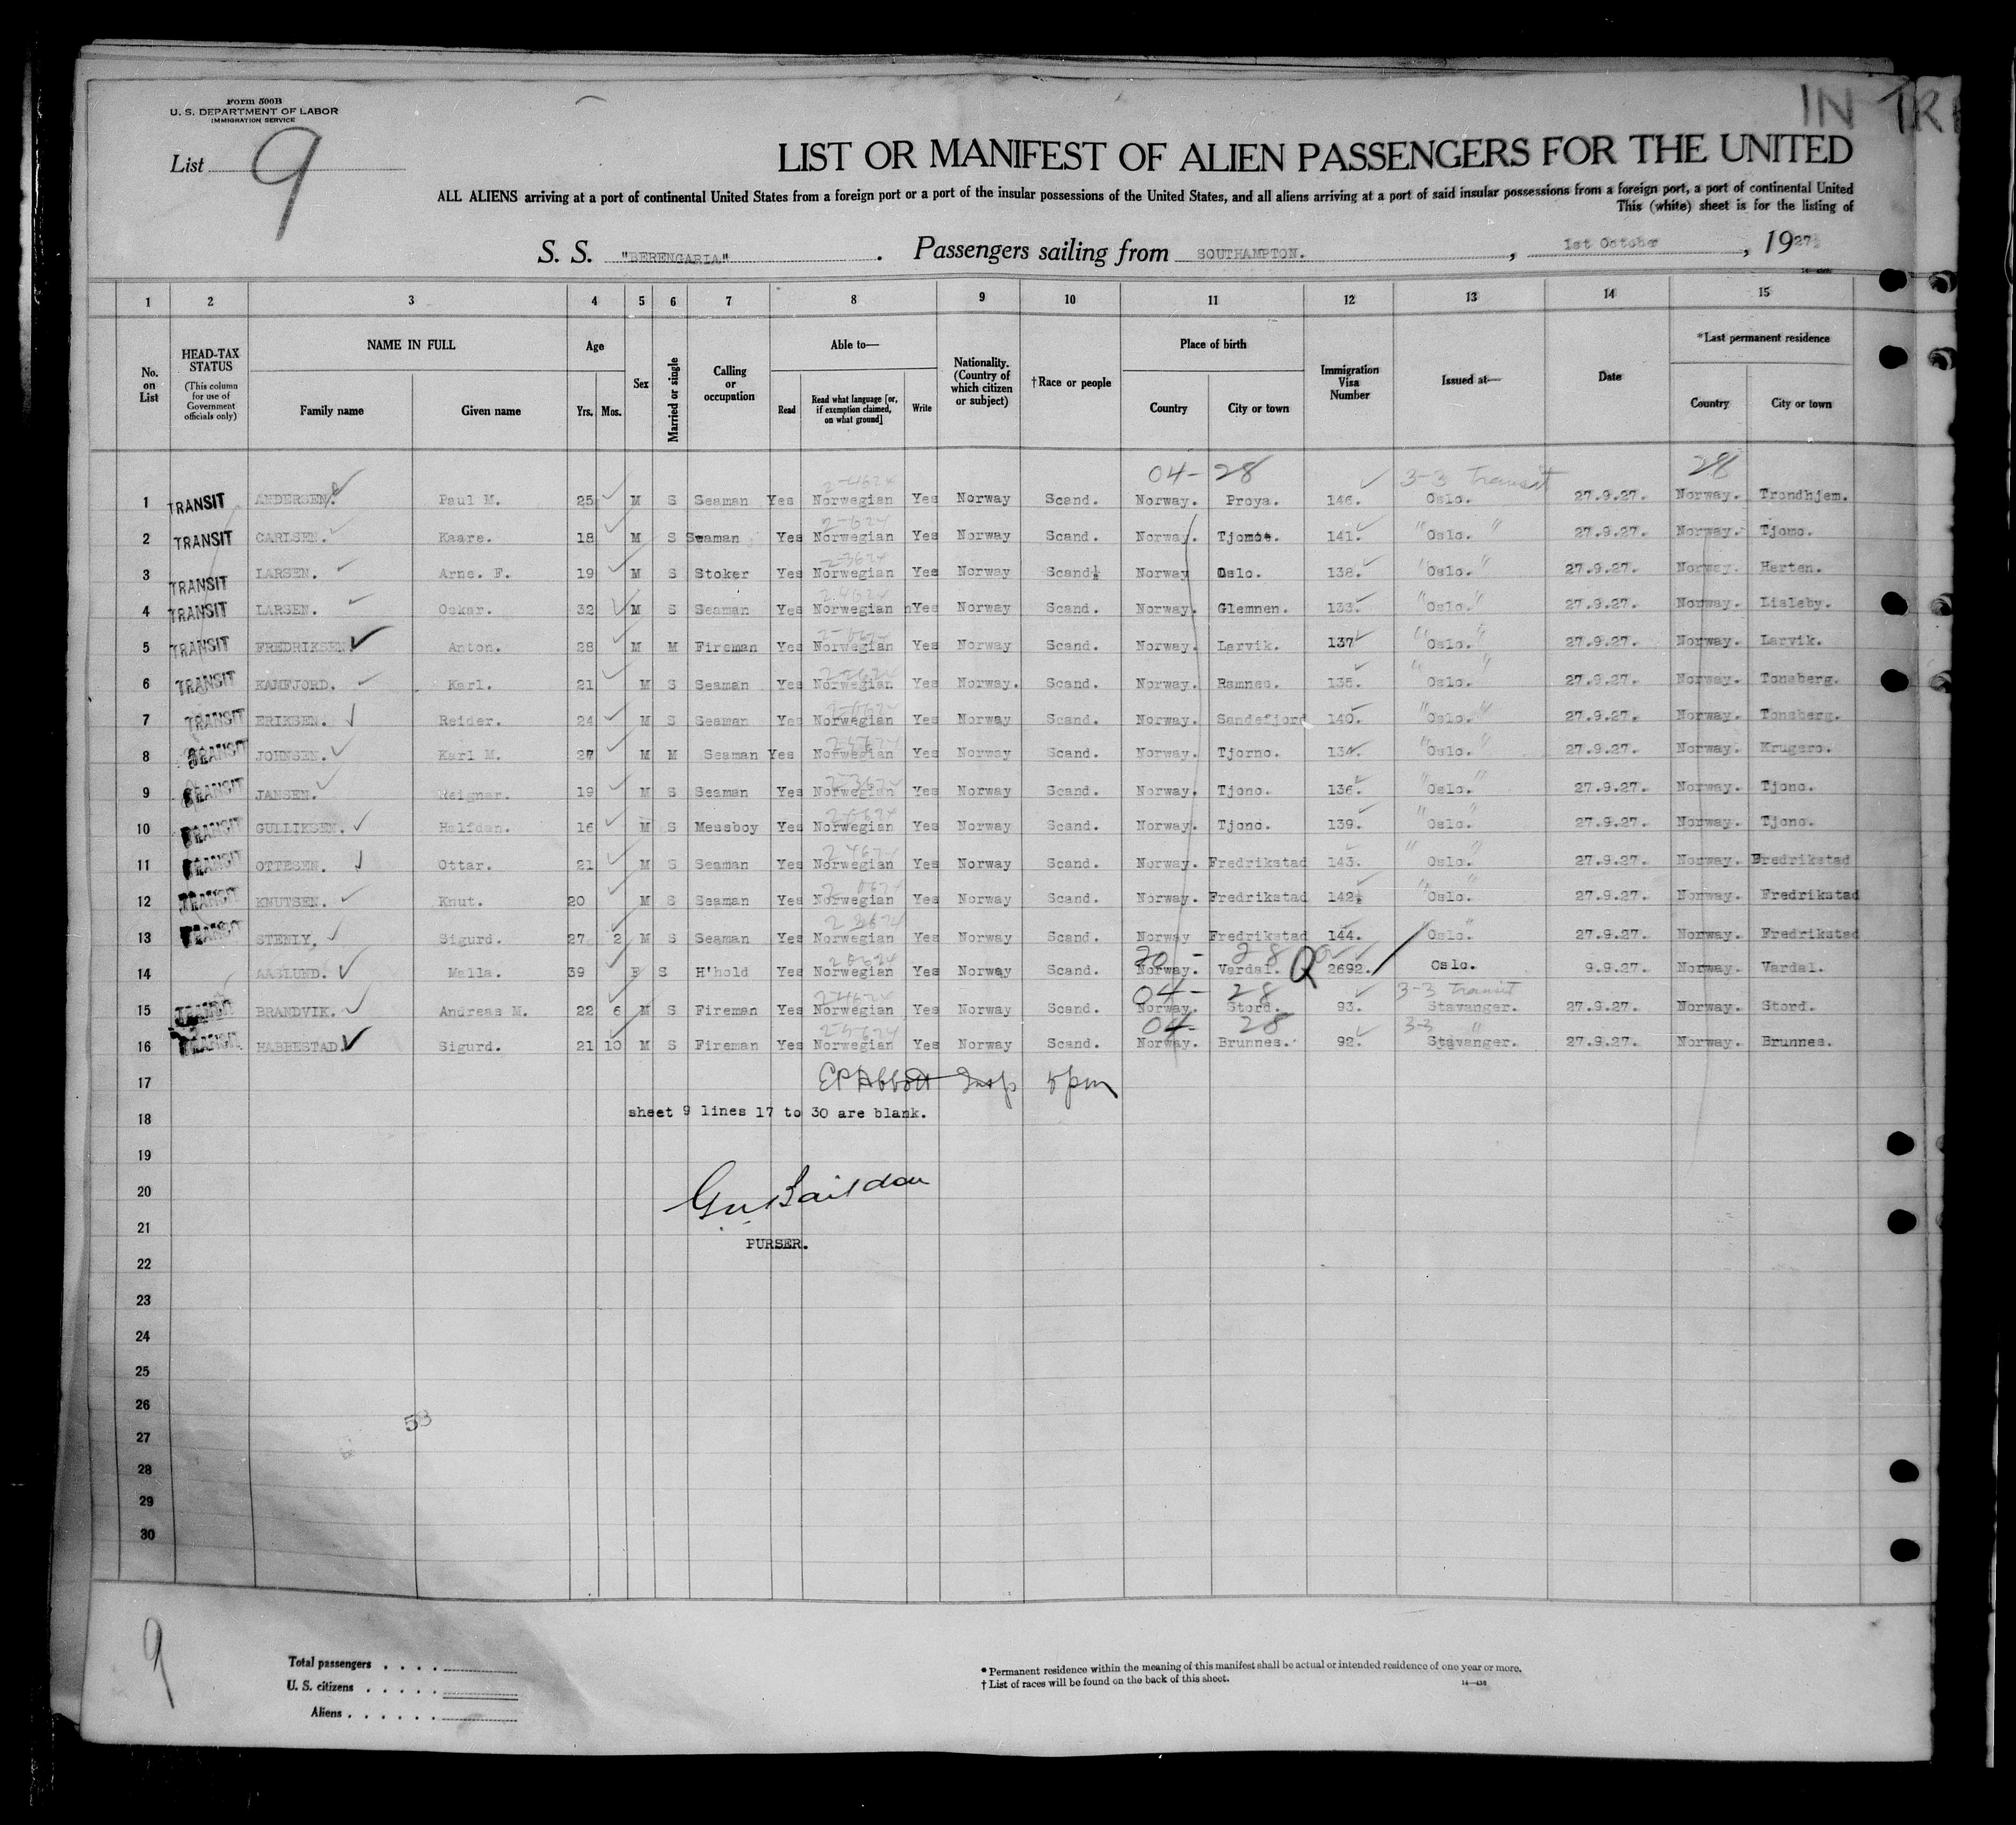 Form 500B
U. S. DEPARTMENT OF LABOR
IMMIGRATION SERVICE
IN TR
List 9
LIST OR MANIFEST OF ALIEN PASSENGERS FOR THE UNITED
ALL ALIENS arriving at a port of continental United States from a foreign port or a port of the insular possessions of the United States, and all aliens arriving at a port of said insular possessions from a foreign port, a port of continental United
This (white) sheet is for the listing of
S. S. "BERENGARIA". Passengers sailing from SOUTHAMPTON. , 1st October , 1927
1 2 3 4 5 6 7 8 9 10 11 12 13 14 15
No. on List HEAD-TAX STATUS (This column for use of Government officials only) NAME IN FULL Family name Given name Age Yrs. Mos. Sex Married or single Calling or occupation Able to— Read Read what language [or, if exemption claimed, on what ground] Write Nationality. (Country of which citizen or subject) †Race or people Place of birth Country City or town Immigration Visa Number Issued at— Date *Last permanent residence Country City or town
04- 28 3-3 Transit 28
1 TRANSIT ANDERSEN. Paul M. 25 M S Seaman Yes Norwegian Yes Norway Scand. Norway. Proya. 146. Oslo. 27.9.27. Norway. Trondhjem.
2 TRANSIT CARLSEN. Kaare. 18 M S Seaman Yes Norwegian Yes Norway Scand. Norway. Tjomoe. 141. "Oslo." 27.9.27. Norway. Tjomo.
3 TRANSIT LARSEN. Arne. F. 19 M S Stoker Yes Norwegian Yes Norway Scand. Norway Oslo. 138. "Oslo." 27.9.27. Norway. Horten.
4 TRANSIT LARSEN. Oskar. 32 M S Seaman Yes Norwegian Yes Norway Scand. Norway. Glemnen. 133. "Oslo." 27.9.27. Norway. Lisleby.
5 TRANSIT FREDRIKSEN Anton. 28 M M Fireman Yes Norwegian Yes Norway Scand. Norway. Larvik. 137 "Oslo." 27.9.27. Norway. Larvik.
6 TRANSIT KAMFJORD. Karl. 21 M S Seaman Yes Norwegian Yes Norway. Scand. Norway. Ramnes. 135. "Oslo." 27.9.27. Norway. Tonsberg.
7 TRANSIT ERIKSEN. Reider. 24 M S Seaman Yes Norwegian Yes Norway Scand. Norway. Sandefjord 140. "Oslo." 27.9.27. Norway. Tonsberg.
8 TRANSIT JOHNSEN. Karl M. 27 M M Seaman Yes Norwegian Yes Norway Scand. Norway. Tjorno. 134. "Oslo." 27.9.27. Norway. Krugero.
9 TRANSIT JANSEN. Reignar. 19 M S Seaman Yes Norwegian Yes Norway Scand. Norway. Tjono. 136. "Oslo." 27.9.27. Norway. Tjono.
10 TRANSIT GULLIKSEN. Halfdan. 16 M S Messboy Yes Norwegian Yes Norway Scand. Norway. Tjono. 139. "Oslo." 27.9.27. Norway. Tjono.
11 TRANSIT OTTESEN. Ottar. 21 M S Seaman Yes Norwegian Yes Norway Scand. Norway. Fredrikstad 143. "Oslo." 27.9.27. Norway. Fredrikstad
12 TRANSIT KNUTSEN. Knut. 20 M S Seaman Yes Norwegian Yes Norway Scand. Norway. Fredrikstad 142. "Oslo." 27.9.27. Norway. Fredrikstad
13 TRANSIT Sigurd. 27 2 M S Seaman Yes Norwegian Yes Norway Scand. Norway Fredrikstad 144. "Oslo." 27.9.27. Norway. Fredrikstad
20 - 28 Q
14 AASLUND. Malla. 39 F S H'hold Yes Norwegian Yes Norway Scand. Norway. Vardal. 2692. Oslo. 9.9.27. Norway. Vardal.
04- 28 3-3 Transit
15 TRANSIT BRANDVIK. Andreas M. 22 6 M S Fireman Yes Norwegian Yes Norway Scand. Norway. Stord. 93. Stavanger. 27.9.27. Norway. Stord.
04- 28 3-3 "
16 TRANSIT HABBESTAD. Sigurd. 21 10 M S Fireman Yes Norwegian Yes Norway Scand. Norway. Brunnes. 92. Stavanger. 27.9.27. Norway. Brunnes.
17 EP Abbott Insp 5 pm
18 sheet 9 lines 17 to 30 are blank.
19
20
21
PURSER.
22
23
24
25
26
53
27
28
29
30
9
Total passengers
U. S. citizens
Aliens
* Permanent residence within the meaning of this manifest shall be actual or intended residence of one year or more.
† List of races will be found on the back of this sheet.
14—436